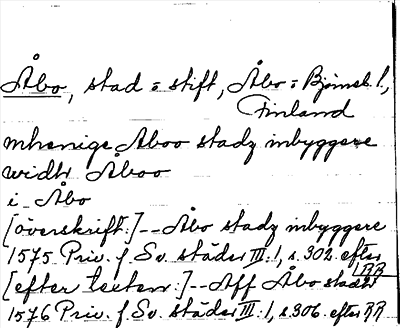 Åbo, stad = stift, Åbo = Björneb. l.,
Finland
mhenige Aboo stadz inbyggere
widh Åboo
i Åbo
[överskrift:]--Åbo stadz inbyggere
1575 Priv. f. Sv. städer III:1, s. 302. efter RR
[efter texten:]--Aff Åbo stadt
1576 Priv. f. Sv. städer III:1, s. 306. efter RR